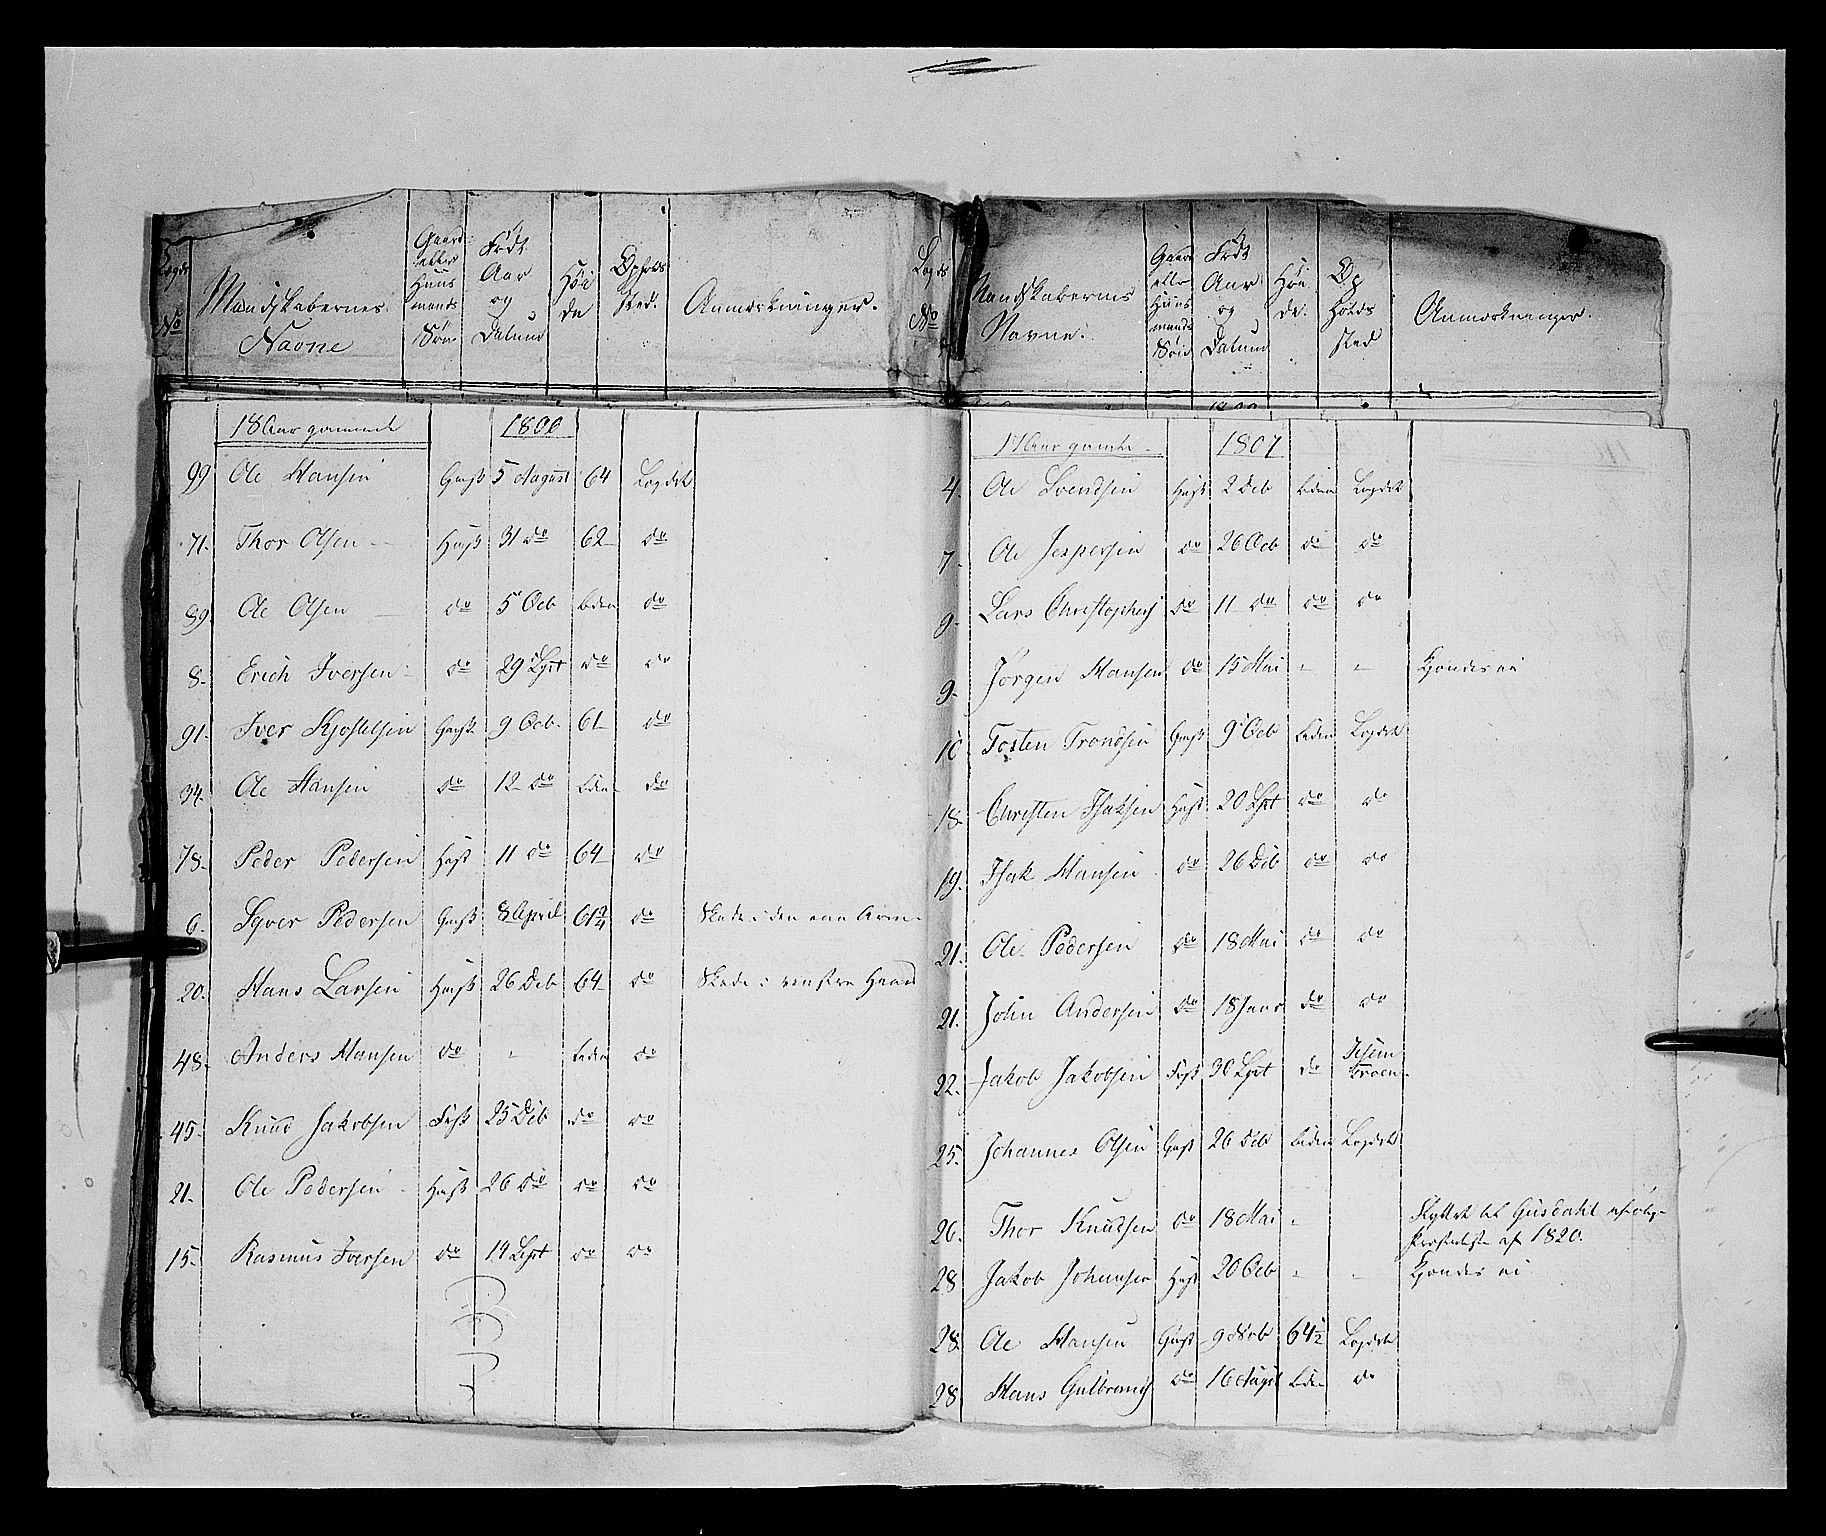 Lægds No
Mandskabernes Navne
Gaard eller Huus mands Søn
Født Aar og Datum
Høi de
Opholds sted.
Anmærkninger.
18 Aar gamle 1806
99 Ole Hansen Gmß 5 August 64 Lægdet
71. Thor Olsen Hmß 31 do 62 do
89 Ole Olsen do 5 Oct liden do
8. Erich Iversen do 29 Sept do do
91. Iver Kjøstelsen Gmß 9 Octb. 61 do
34. Ole Hansen do 12 do liden do
78. Peder Pedersen Hmß 11 do 64 do
6. Syver Pedersen Gmß 8 April 61 3/4 do Skade i den ene Arm
20. Hans Larsen Hmß 26 Deb 64 do Skade i venstre Haand
48. Anders Hansen do - liden do
45. Knud Jakobsen Fsß 25 Deb do do
21. Ole Pedersen Hmß 26 do do do
15. Rasmus Iversen do 14 Sept do do
Lægds No
Mandskabernes Navne.
Gaard eller Huus mands Søn
Født Aar og Datum
Høi de.
Op holds sted
Anmærkninger.
17 Aar gamle. 1807
4. Ole Svendsen Hmß 2 Deb liden Lægdet
7. Ole Jespersen do 26 Octb do do
9. Lars Christophers do 11 do do do
9. Jørgen Hansen do 15 Mai - - Kjendes ei
10 Tosten Trondsen Gmß 9 Octb liden Lægdet
18. Christen Isaksen Hmß 20 Sept do do
19. Isak Hansen do 26 Deb do do
21. Ole Pedersen do 18 Mai do do
21. John Andersen do 18 Janr do do
22. Jakob Jakobsen Fsß 30 Sept do
25. Johannes Olsen Gmß 26 Octb liden Lægdet
26. Thor Knudsen do 18 Mai - Flyttet til Gusdahl
af 1820.
28 Jakob Johansen Hmß 20 Octb - - Kjendes ei
28. Ole Hansen Gmß 9 Novb 64 1/2 Lægdet
28. Hans Gulbrands do 16 Augst liden do